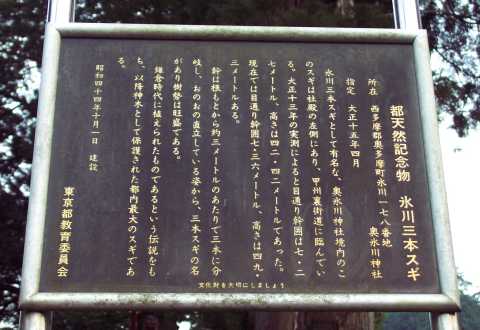 都天然記念物 氷川三本スギ
所在 西多摩郡奥多摩町氷川一七八番地
奥氷川神社
指定 大正十五年四月
氷川三本スギとして有名な、奥氷川神社境内のこ
のスギは社殿の左側にあり、甲州裏街道に臨んでい
る。大正十三年の実測によると目通り幹囲は七・二
七メートル、高さは四二・四二メートルであった。
現在では目通り幹囲七・三六メートル、高さは四九・
三メートルある。
幹は根もとから約三メートルのあたりで三本に分
岐し、おのおの直立している姿から、三本スギの名
があり樹勢は旺盛である。
鎌倉時代に植えられたものであるという伝説をも
ち、以降神木として保護された都内最大のスギであ
る。
昭和四十四年十月一日 建設
東京都教育委員会
文化財を大切にしましょう